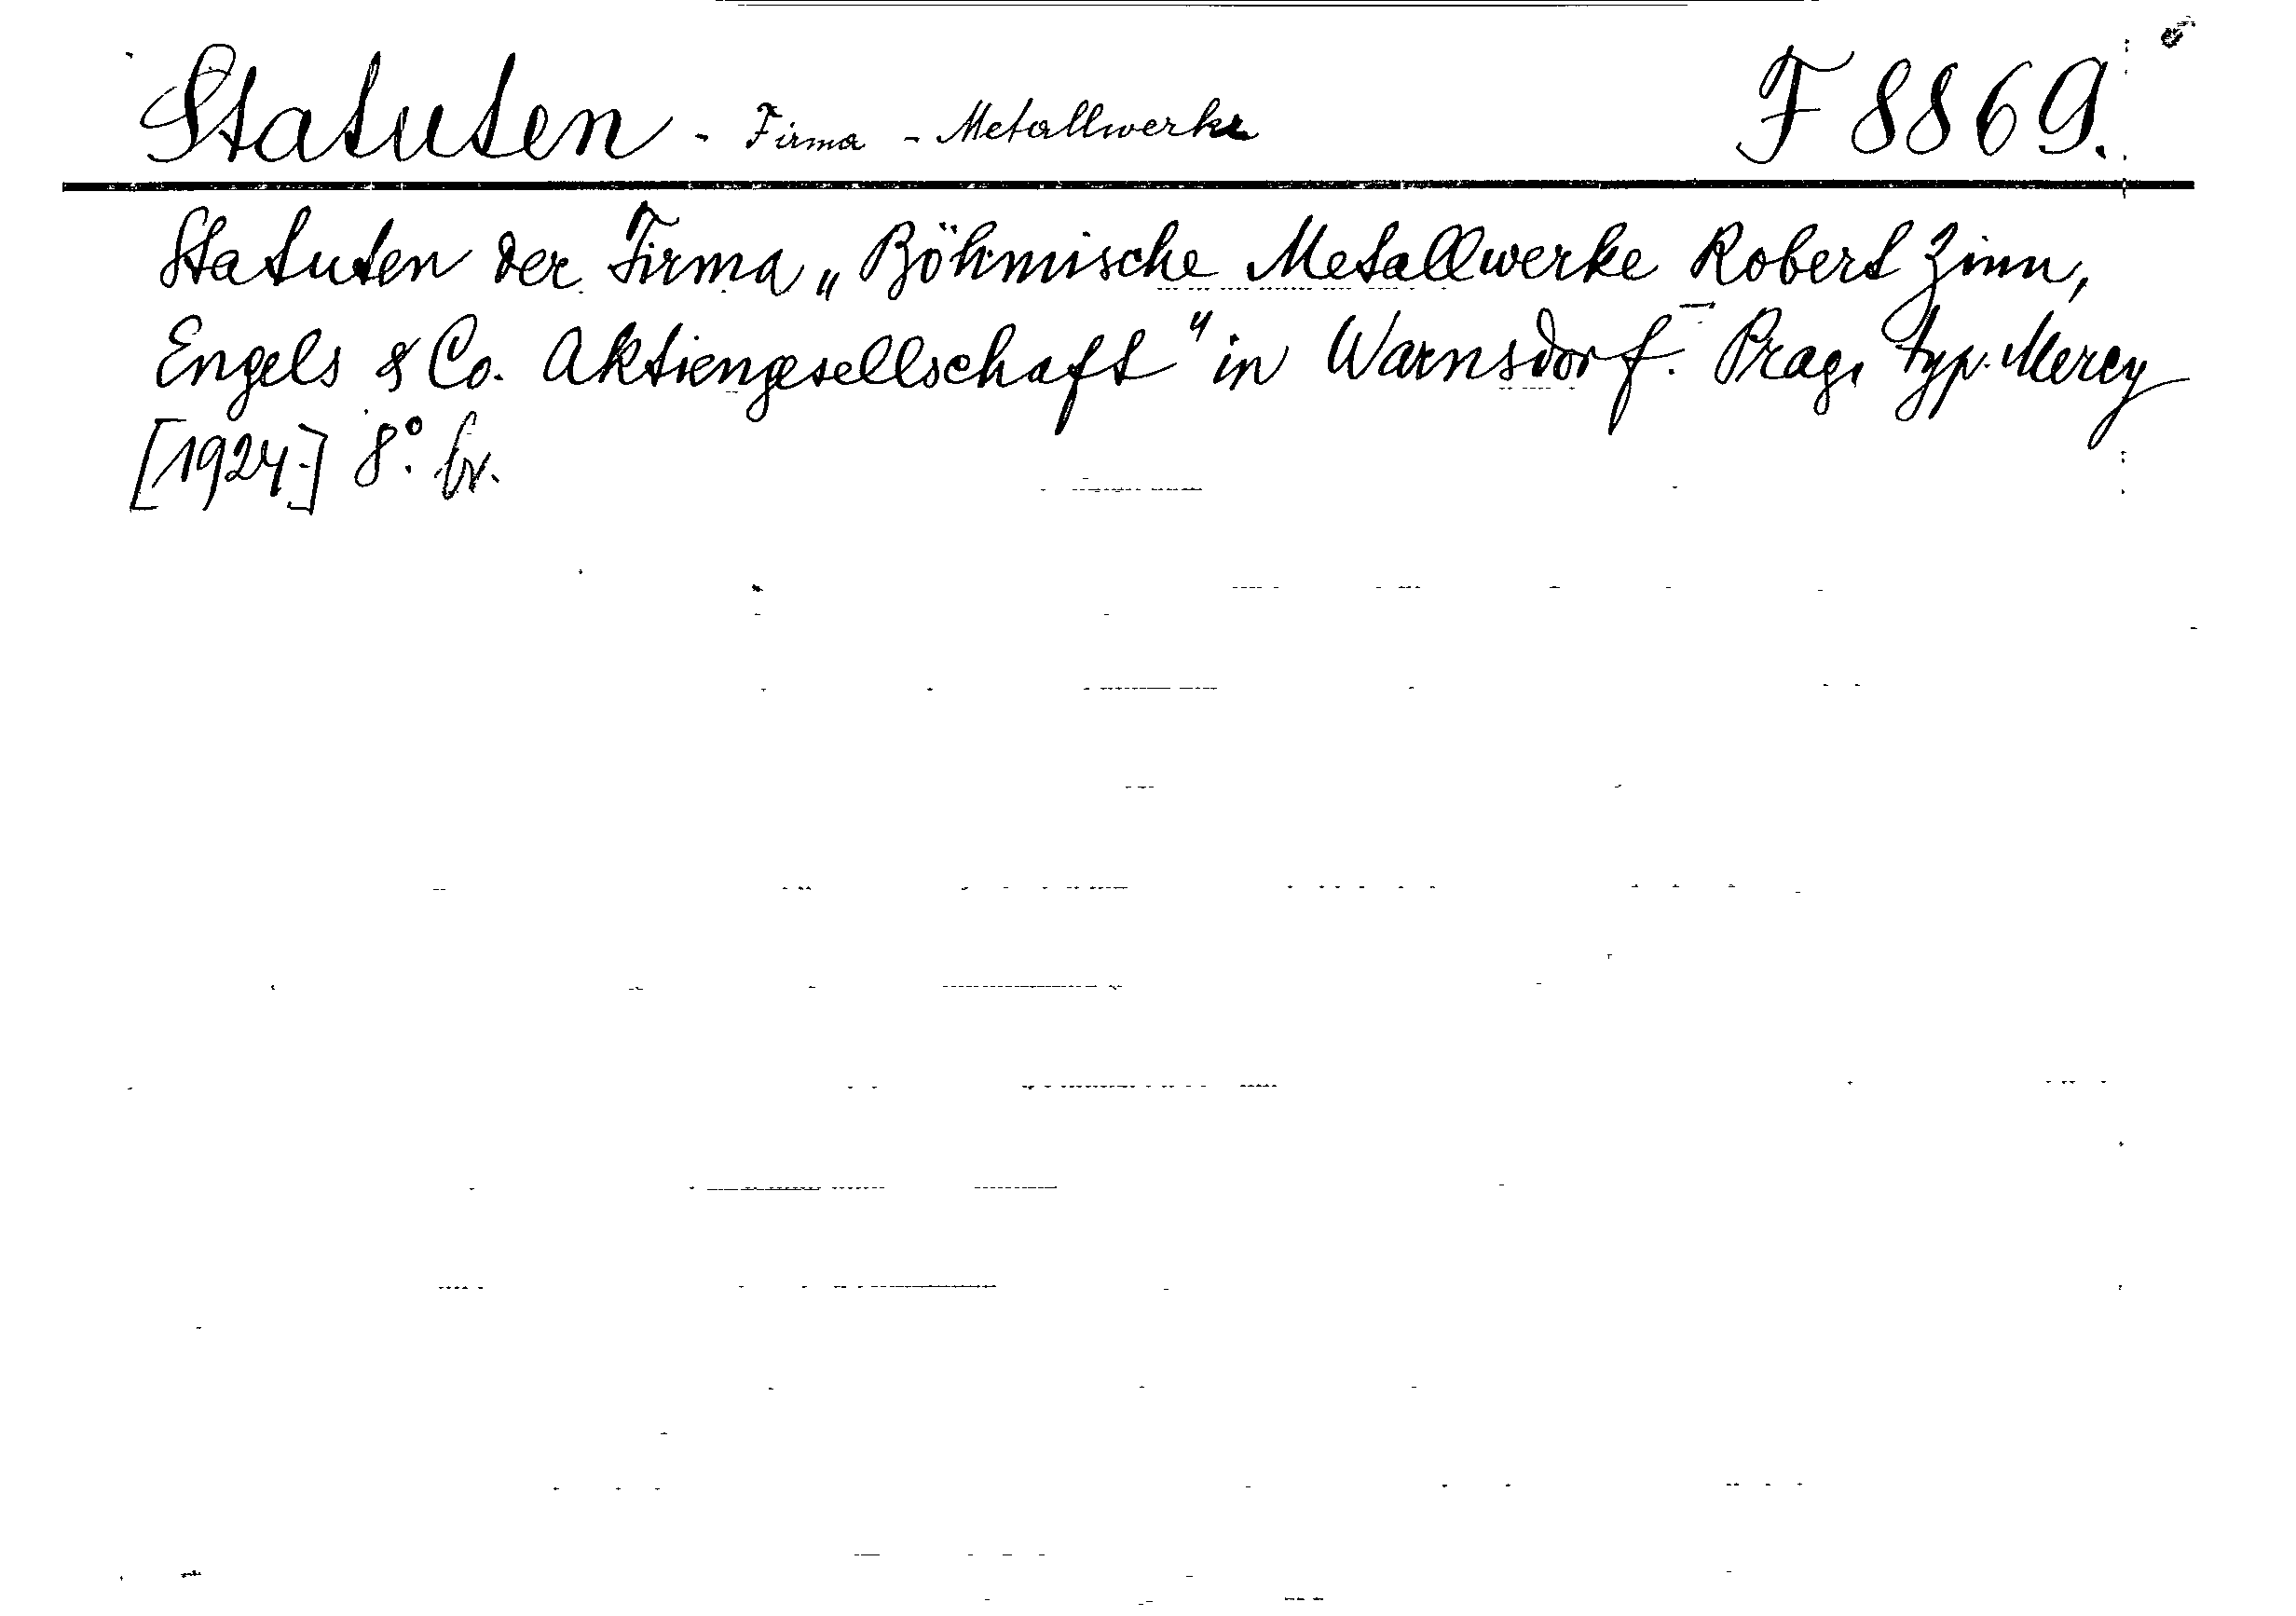 Statuten - Firma - Metallwerke F 8869.
Statuten der Firma „Böhmische Metallwerke Robert Zinn,
Engels & Co. Aktiengesellschaft" in Warnsdorf. Prag, typ. Mercy
[1924.] 8°. br.